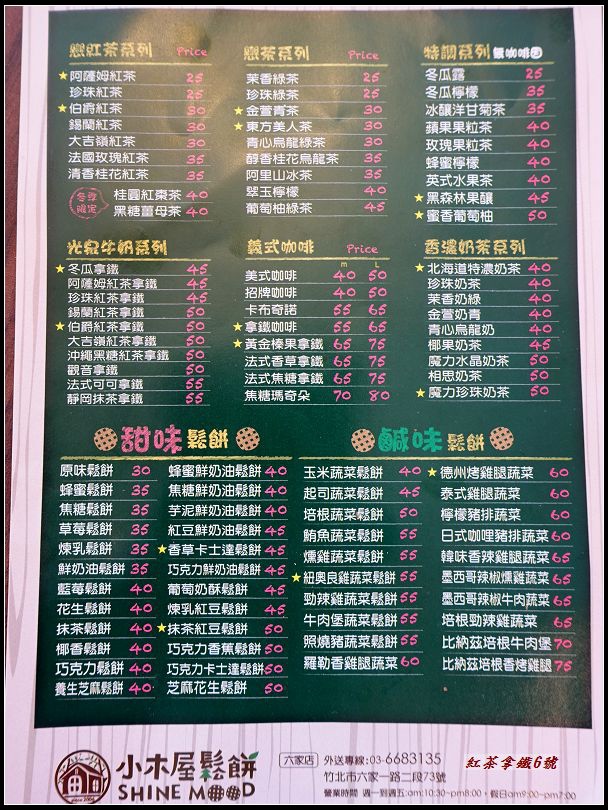 戀紅茶系列 Price
阿薩姆紅茶 25
珍珠紅茶 25
伯爵紅茶 30
錫蘭紅茶 30
大吉嶺紅茶 35
法國玫瑰紅茶 35
清香桂花紅茶 35
冬季限定
桂圓紅棗茶 40
黑糖薑母茶 40
戀茶系列 Price
茉香綠茶 25
珍珠綠茶 25
金萱青茶 30
東方美人茶 30
青心烏龍綠茶 30
醇香桂花烏龍茶 35
阿里山冰茶 35
翠玉檸檬 40
葡萄柚綠茶 45
特調系列 無咖啡因
冬瓜露 25
冬瓜檸檬 35
冰釀洋甘菊茶 35
蘋果果粒茶 40
玫瑰果粒茶 40
蜂蜜檸檬 40
英式水果茶 40
黑森林果釀 45
蜜香葡萄柚 50
光泉牛奶系列
冬瓜拿鐵 45
阿薩姆紅茶拿鐵 45
珍珠紅茶拿鐵 45
錫蘭紅茶拿鐵 50
伯爵紅茶拿鐵 50
大吉嶺紅茶拿鐵 50
沖繩黑糖紅茶拿鐵 50
觀音拿鐵 50
法式可可拿鐵 55
靜岡抹茶拿鐵 55
義式咖啡 Price
M L
美式咖啡 40 50
招牌咖啡 40 50
卡布奇諾 55 65
拿鐵咖啡 55 65
黃金榛果拿鐵 65 75
法式香草拿鐵 65 75
法式焦糖拿鐵 65 75
焦糖瑪奇朵 70 80
香濃奶茶系列
北海道特濃奶茶 40
珍珠奶茶 40
茉香奶綠 40
金萱奶青 40
青心烏龍奶 40
椰果奶茶 45
魔力水晶奶茶 50
相思奶茶 50
魔力珍珠奶茶 50
甜味鬆餅
原味鬆餅 30
蜂蜜鬆餅 35
焦糖鬆餅 35
草莓鬆餅 35
煉乳鬆餅 35
鮮奶油鬆餅 35
藍莓鬆餅 40
花生鬆餅 40
抹茶鬆餅 40
椰香鬆餅 40
巧克力鬆餅 40
養生芝麻鬆餅 40
蜂蜜鮮奶油鬆餅 40
焦糖鮮奶油鬆餅 40
芋泥鮮奶油鬆餅 40
紅豆鮮奶油鬆餅 45
香草卡士達鬆餅 45
巧克力鮮奶油鬆餅 45
葡萄奶酥鬆餅 45
煉乳紅豆鬆餅 45
抹茶紅豆鬆餅 50
巧克力香蕉鬆餅 50
巧克力卡士達鬆餅 50
芝麻花生鬆餅 50
鹹味鬆餅
玉米蔬菜鬆餅 40
起司蔬菜鬆餅 45
培根蔬菜鬆餅 50
鮪魚蔬菜鬆餅 55
燻雞蔬菜鬆餅 55
紐奧良雞蔬菜鬆餅 55
勁辣雞蔬菜鬆餅 55
牛肉堡蔬菜鬆餅 55
照燒豬蔬菜鬆餅 55
羅勒香雞腿蔬菜 60
德州烤雞腿蔬菜 60
泰式雞腿蔬菜 60
檸檬豬排蔬菜 60
日式咖哩豬排蔬菜 60
韓味香辣雞腿蔬菜 65
墨西哥辣椒燻雞蔬菜 65
墨西哥辣椒牛肉蔬菜 65
培根勁辣雞蔬菜 65
比納茲培根牛肉堡 70
比納茲培根香烤雞腿 75
小木屋鬆餅
SHINE MOOD
六家店 外送專線:03-6683135
竹北市六家一路二段73號
營業時間 週一到週五:am10:30~pm8:00，假日am9:00~pm7:00
紅茶拿鐵6號